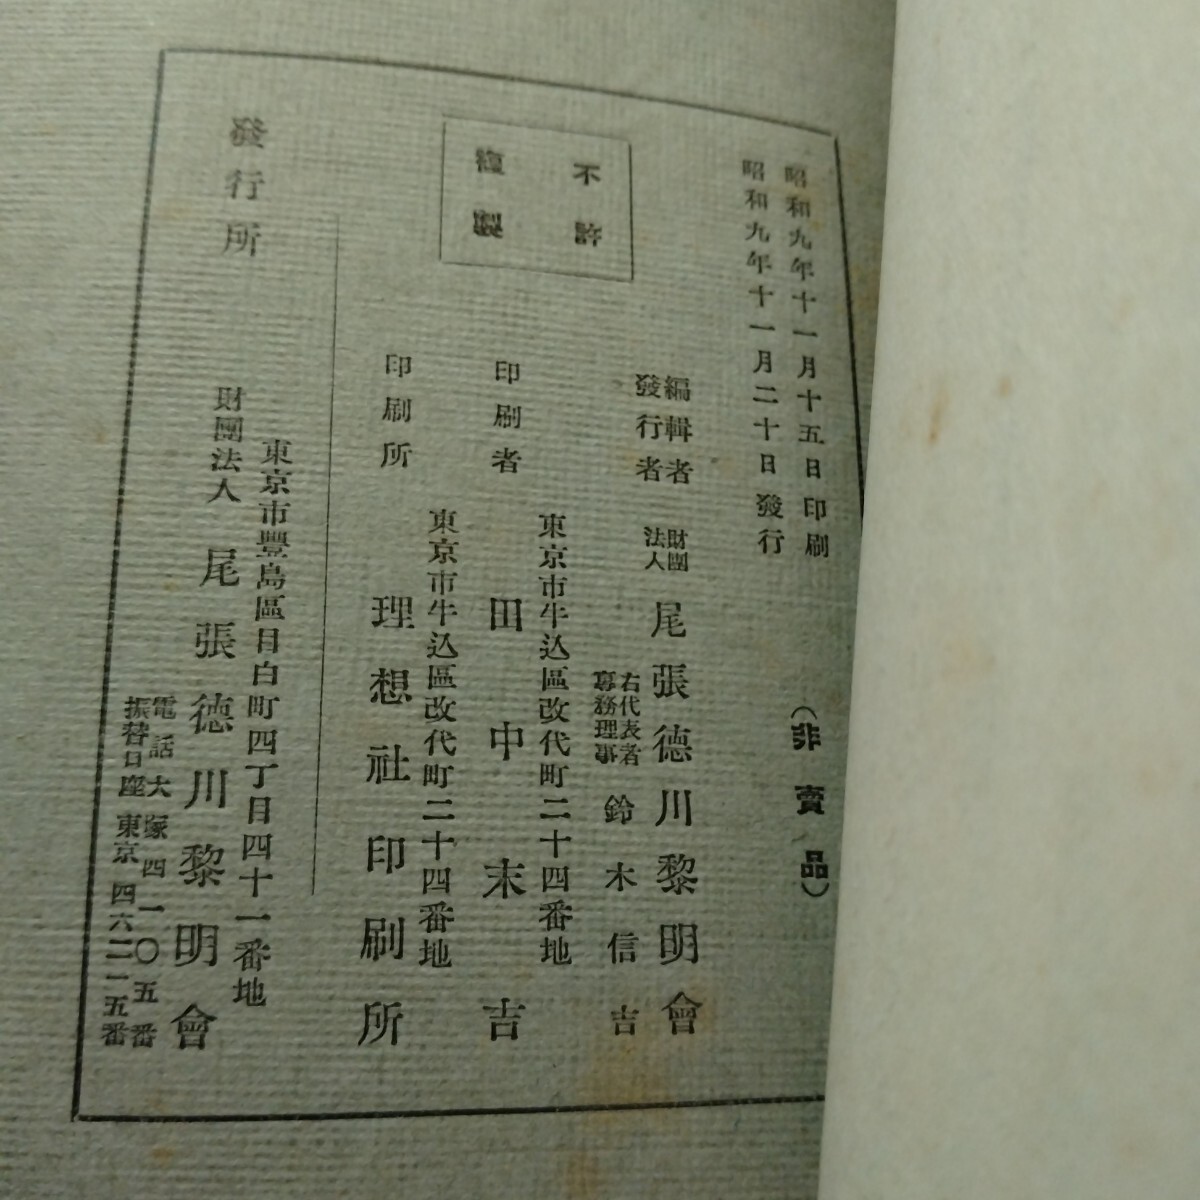 昭和九年十一月十五日印刷
昭和九年十一月二十日發行
(非賣品)
不許
複製
編輯者
發行者
財團
法人
尾張德川黎明會
右代表者
專務理事
鈴木信吉
東京市牛込區改代町二十四番地
印刷者
田中末吉
東京市牛込區改代町二十四番地
印刷所
理想社印刷所
發行所
東京市豐島區目白町四丁目四十一番地
財團法人
尾張德川黎明會
電話大塚四一〇五番
振替口座東京四六二一五番